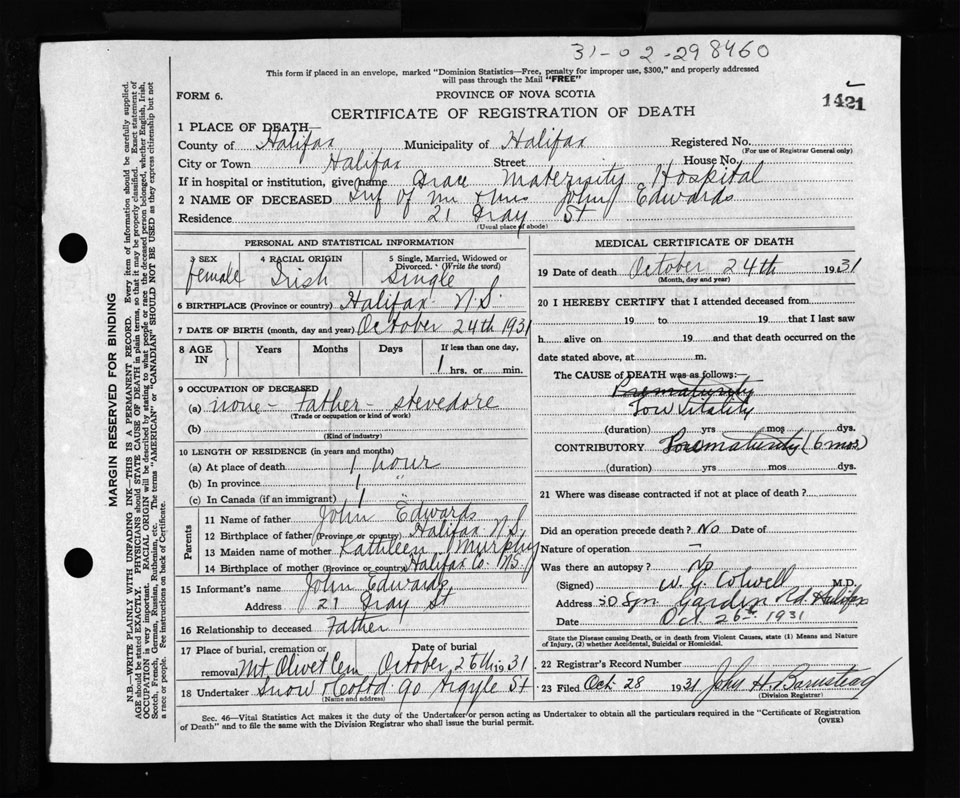 31-02-298460
This form if placed in an envelope, marked "Dominion Statistics—Free, penalty for improper use, $300," and properly addressed
will pass through the Mail "FREE"
FORM 6.
PROVINCE OF NOVA SCOTIA
1421
CERTIFICATE OF REGISTRATION OF DEATH
1 PLACE OF DEATH—
County of Halifax Municipality of Halifax Registered No.
(For use of Registrar General only)
City or Town Halifax Street House No.
If in hospital or institution, give name Grace Maternity Hospital
2 NAME OF DECEASED Inf of Mr & Mrs John Edwards
Residence 21 Gray St
(Usual place of abode)
PERSONAL AND STATISTICAL INFORMATION
3 SEX 4 RACIAL ORIGIN 5 Single, Married, Widowed or
Divorced. (Write the word)
female Irish Single
6 BIRTHPLACE (Province or country) Halifax N.S.
7 DATE OF BIRTH (month, day and year) October 24th 1931
8 AGE IN Years Months Days If less than one day,
1 hrs. or min.
9 OCCUPATION OF DECEASED
(a) none - Father - stevedore
(Trade or occupation or kind of work)
(b)
(Kind of industry)
10 LENGTH OF RESIDENCE (in years and months)
(a) At place of death 1 hour
(b) In province 1 "
(c) In Canada (if an immigrant) 1
Parents
11 Name of father John Edwards
12 Birthplace of father (Province or country) Halifax N.S.
13 Maiden name of mother Kathleen Murphy
14 Birthplace of mother (Province or country) Halifax Co. N.S.
15 Informant's name John Edwards
Address 21 Gray St
16 Relationship to deceased Father
17 Place of burial, cremation or Date of burial
removal Mt. Olivet Cem October 26th 1931
18 Undertaker Snow & Co Ltd 90 Argyle St
(Name and address)
MEDICAL CERTIFICATE OF DEATH
19 Date of death October 24th 1931
(Month, day and year)
20 I HEREBY CERTIFY that I attended deceased from
19 to 19 that I last saw
h alive on 19 and that death occurred on the
date stated above, at m.
The CAUSE of DEATH was as follows:—
Prematurity
Low Vitality
(duration) yrs mos dys.
CONTRIBUTORY Prematurity (6 mos)
(duration) yrs mos dys.
21 Where was disease contracted if not at place of death?
Did an operation precede death? No Date of
Nature of operation -
Was there an autopsy? No
(Signed) W. G. Colwell M.D.
Address Spr Garden Rd Halifax
Date Oct. 26th 1931
State the Disease causing Death, or in death from Violent Causes, state (1) Means and Nature
of Injury, (2) whether Accidental, Suicidal or Homicidal.
22 Registrar's Record Number
23 Filed Oct 28 1931 John H. Barnstead
(Division Registrar)
Sec. 46—Vital Statistics Act makes it the duty of the Undertaker or person acting as Undertaker to obtain all the particulars required in the "Certificate of Registration
of Death" and to file the same with the Division Registrar who shall issue the burial permit.
(OVER)
MARGIN RESERVED FOR BINDING
N.B.—WRITE PLAINLY WITH UNFADING INK—THIS IS A PERMANENT RECORD. Every item of information should be carefully supplied.
AGE should be stated EXACTLY. PHYSICIANS should STATE CAUSE OF DEATH in plain terms, so that it may be properly classified. Exact statement of
OCCUPATION is very important. RACIAL ORIGIN will be described by stating to what people or race the deceased person belonged, whether English, Irish,
Scotch, French, German, Russian, Ruthenian, etc. The terms "AMERICAN" or "CANADIAN" SHOULD NOT BE USED as they express citizenship but not
a race or people. See instructions on back of Certificate.